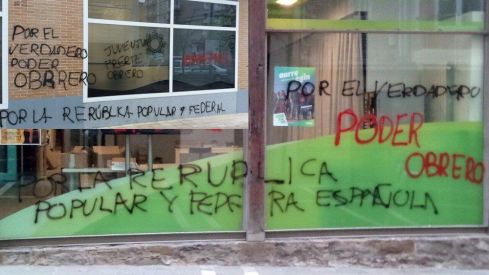 POR EL
VERDADERO
PODER
OBRERO
JUVENTUD
FRENTE
OBRERO
POR LA REPÚBLICA POPULAR Y FEDERAL
POR EL VERDADERO
PODER
OBRERO
POR LA REPUBLICA
POPULAR Y FEDERA ESPAÑOLA